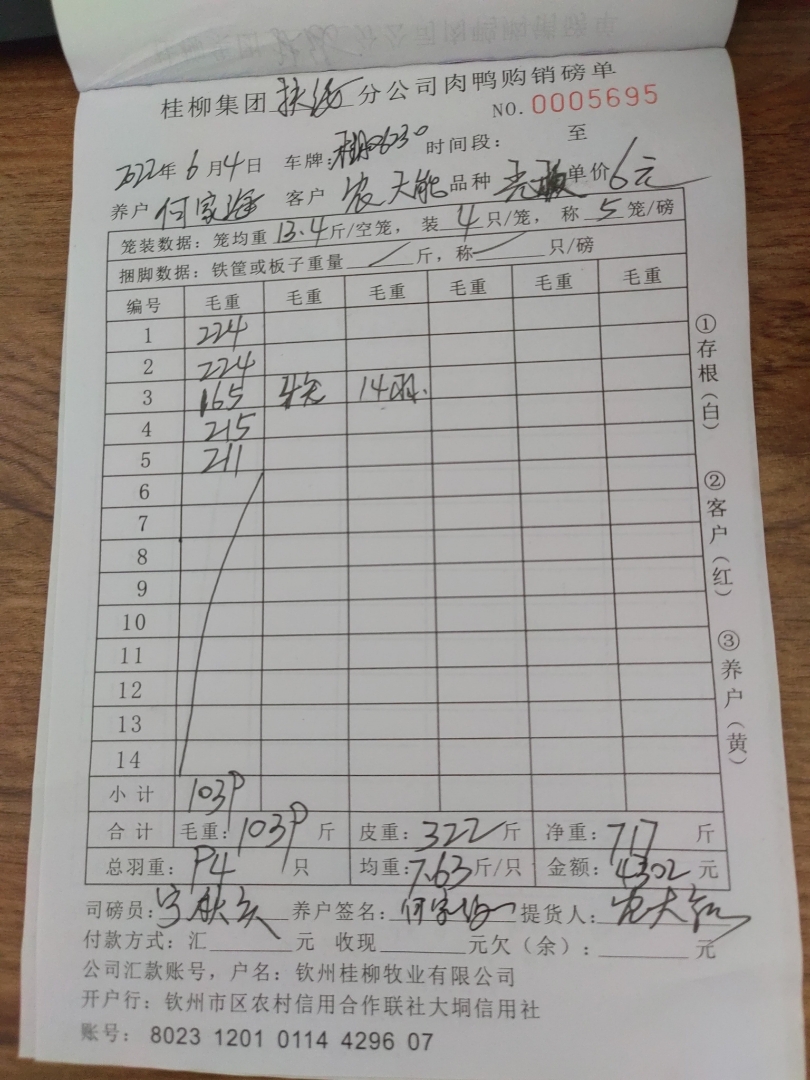 桂柳集团扶绥分公司肉鸭购销磅单
NO. 0005695
2022年6月4日 车牌: 时间段: 至
养户 何家海 客户 农天能 品种 单价 6元
笼装数据: 笼均重 13.4 斤/空笼, 装 4 只/笼, 称 5 笼/磅
捆脚数据: 铁筐或板子重量 斤, 称 只/磅
编号 毛重 毛重 毛重 毛重 毛重 毛重
1 224
2 224
3 165 4笼 14羽.
4 215
5 211
6
7
8
9
10
11
12
13
14
小计 1039
合计 毛重: 1039 斤 皮重: 322 斤 净重: 717 斤
总羽重: 94 只 均重: 7.63 斤/只 金额: 4302 元
司磅员: 养户签名: 何家海 提货人:
付款方式: 汇 元 收现 元欠(余): 元
公司汇款账号, 户名: 钦州桂柳牧业有限公司
开户行: 钦州市区农村信用合作联社大垌信用社
账号: 8023 1201 0114 4296 07
①存根(白)
②客户(红)
③养户(黄)